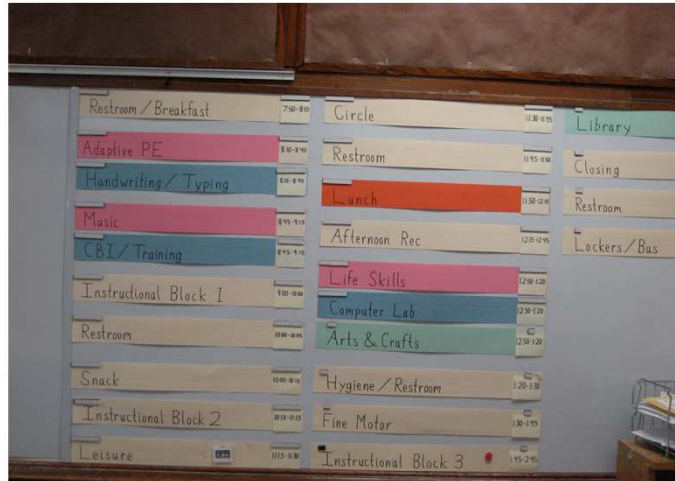 Restroom / Breakfast 7:50-8:10
Adaptive PE 8:10-8:40
Handwriting / Typing 8:10-8:40
Music 8:45-9:15
CBI / Training 8:45-9:15
Instructional Block 1
Restroom 10:00-10:05
Snack 10:05-10:15
Instructional Block 2 10:15-11:15
Leisure 11:15-11:30
Circle 11:30-11:45
Restroom 11:45-11:50
Lunch 11:50-12:10
Afternoon Rec 12:15-12:45
Life Skills 12:50-1:20
Computer Lab 12:50-1:20
Arts & Crafts 12:50-1:20
Hygiene / Restroom 1:20-1:30
Fine Motor 1:30-1:45
Instructional Block 3 1:45-2:45
Library
Closing
Restroom
Lockers / Bus